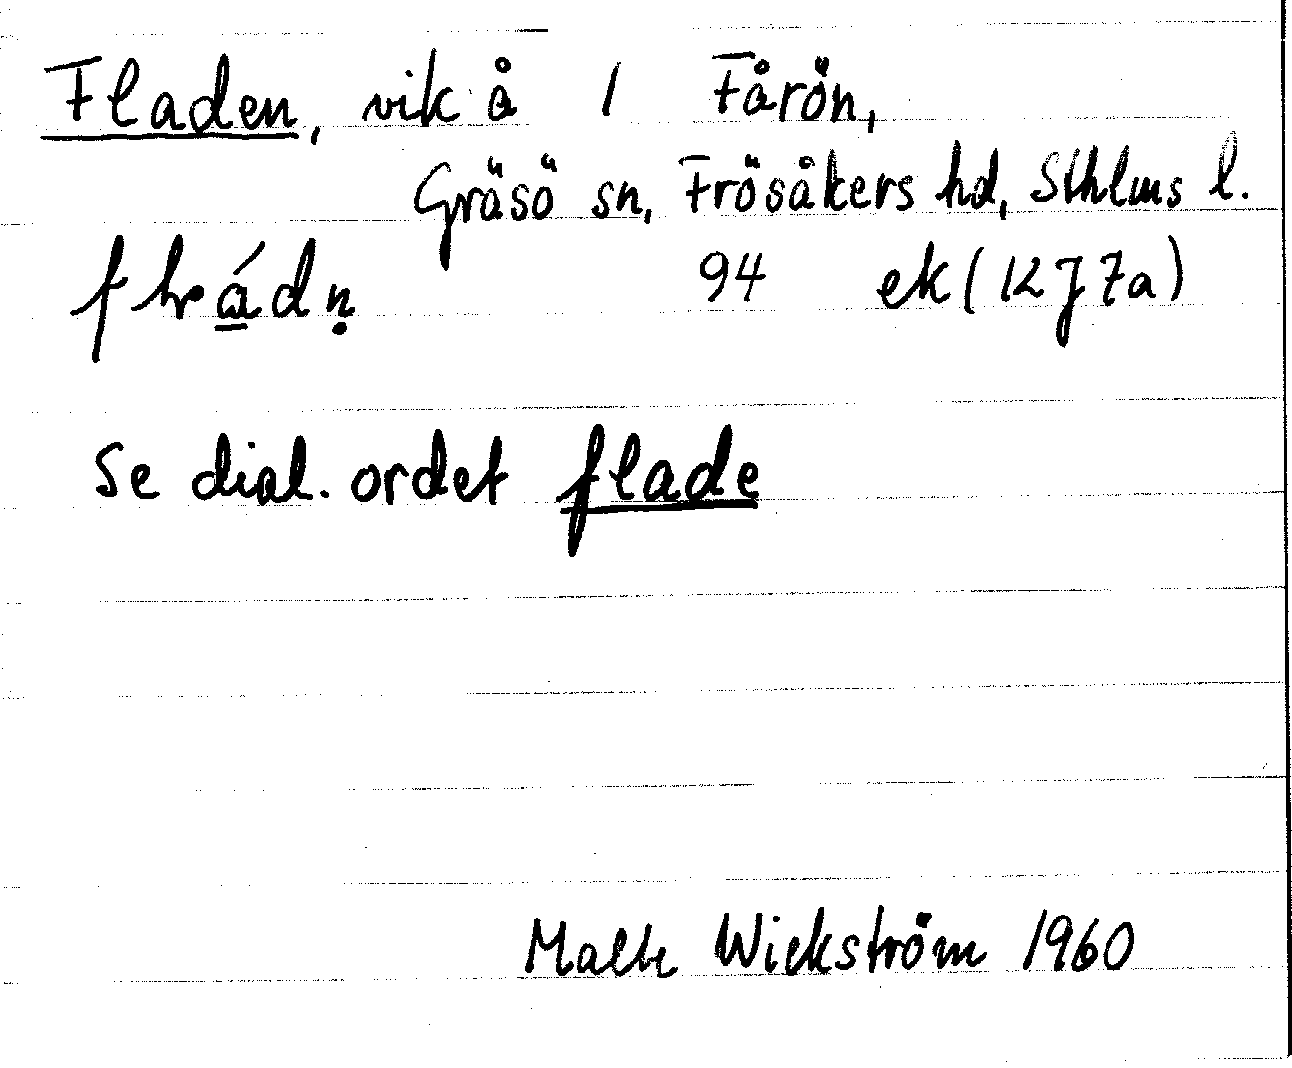 Fladen, vik å 1 Fårön,
Gräsö sn, Frösåkers hd, Sthlms l.
94 ek (12 J 7a)
Se dial. ordet flade
Malte Wickström 1960